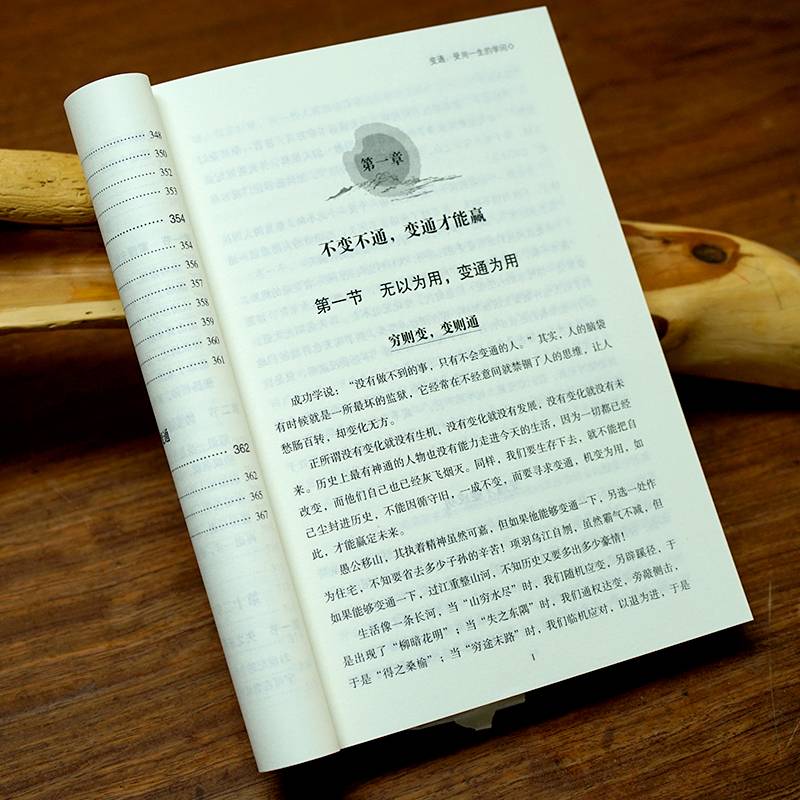 348
350
352
353
354
354
356
357
358
359
360
361
通
362
362
365
367
变通:受用一生的学问
第一章
不变不通，变通才能赢
第一节 无以为用，变通为用
穷则变，变则通
成功学说：“没有做不到的事，只有不会变通的人。”其实，人的脑袋
有时候就是一所最坏的监狱，它经常在不经意间就禁锢了人的思维，让人
愁肠百转，却变化无方。
正所谓没有变化就没有生机，没有变化就没有发展，没有变化就没有未
来。历史上最有神通的人物也没有能力走进今天的生活，因为一切都已经
改变，而他们自己也已经灰飞烟灭。同样，我们要生存下去，就不能把自
己尘封进历史，不能因循守旧，一成不变，而要寻求变通，机变为用，如
此，才能赢定未来。
愚公移山，其执着精神虽然可嘉，但如果他能够变通一下，另选一处作
为住宅，不知要省去多少子孙的辛苦！项羽乌江自刎，虽然霸气不减，但
如果能够变通一下，过江重整山河，不知历史又要多出多少豪情！
生活像一条长河，当“山穷水尽”时，我们随机应变，另辟蹊径，于
是出现了“柳暗花明”；当“失之东隅”时，我们通权达变，旁敲侧击，
于是“得之桑榆”；当“穷途末路”时，我们临机应对，以退为进，于是
1